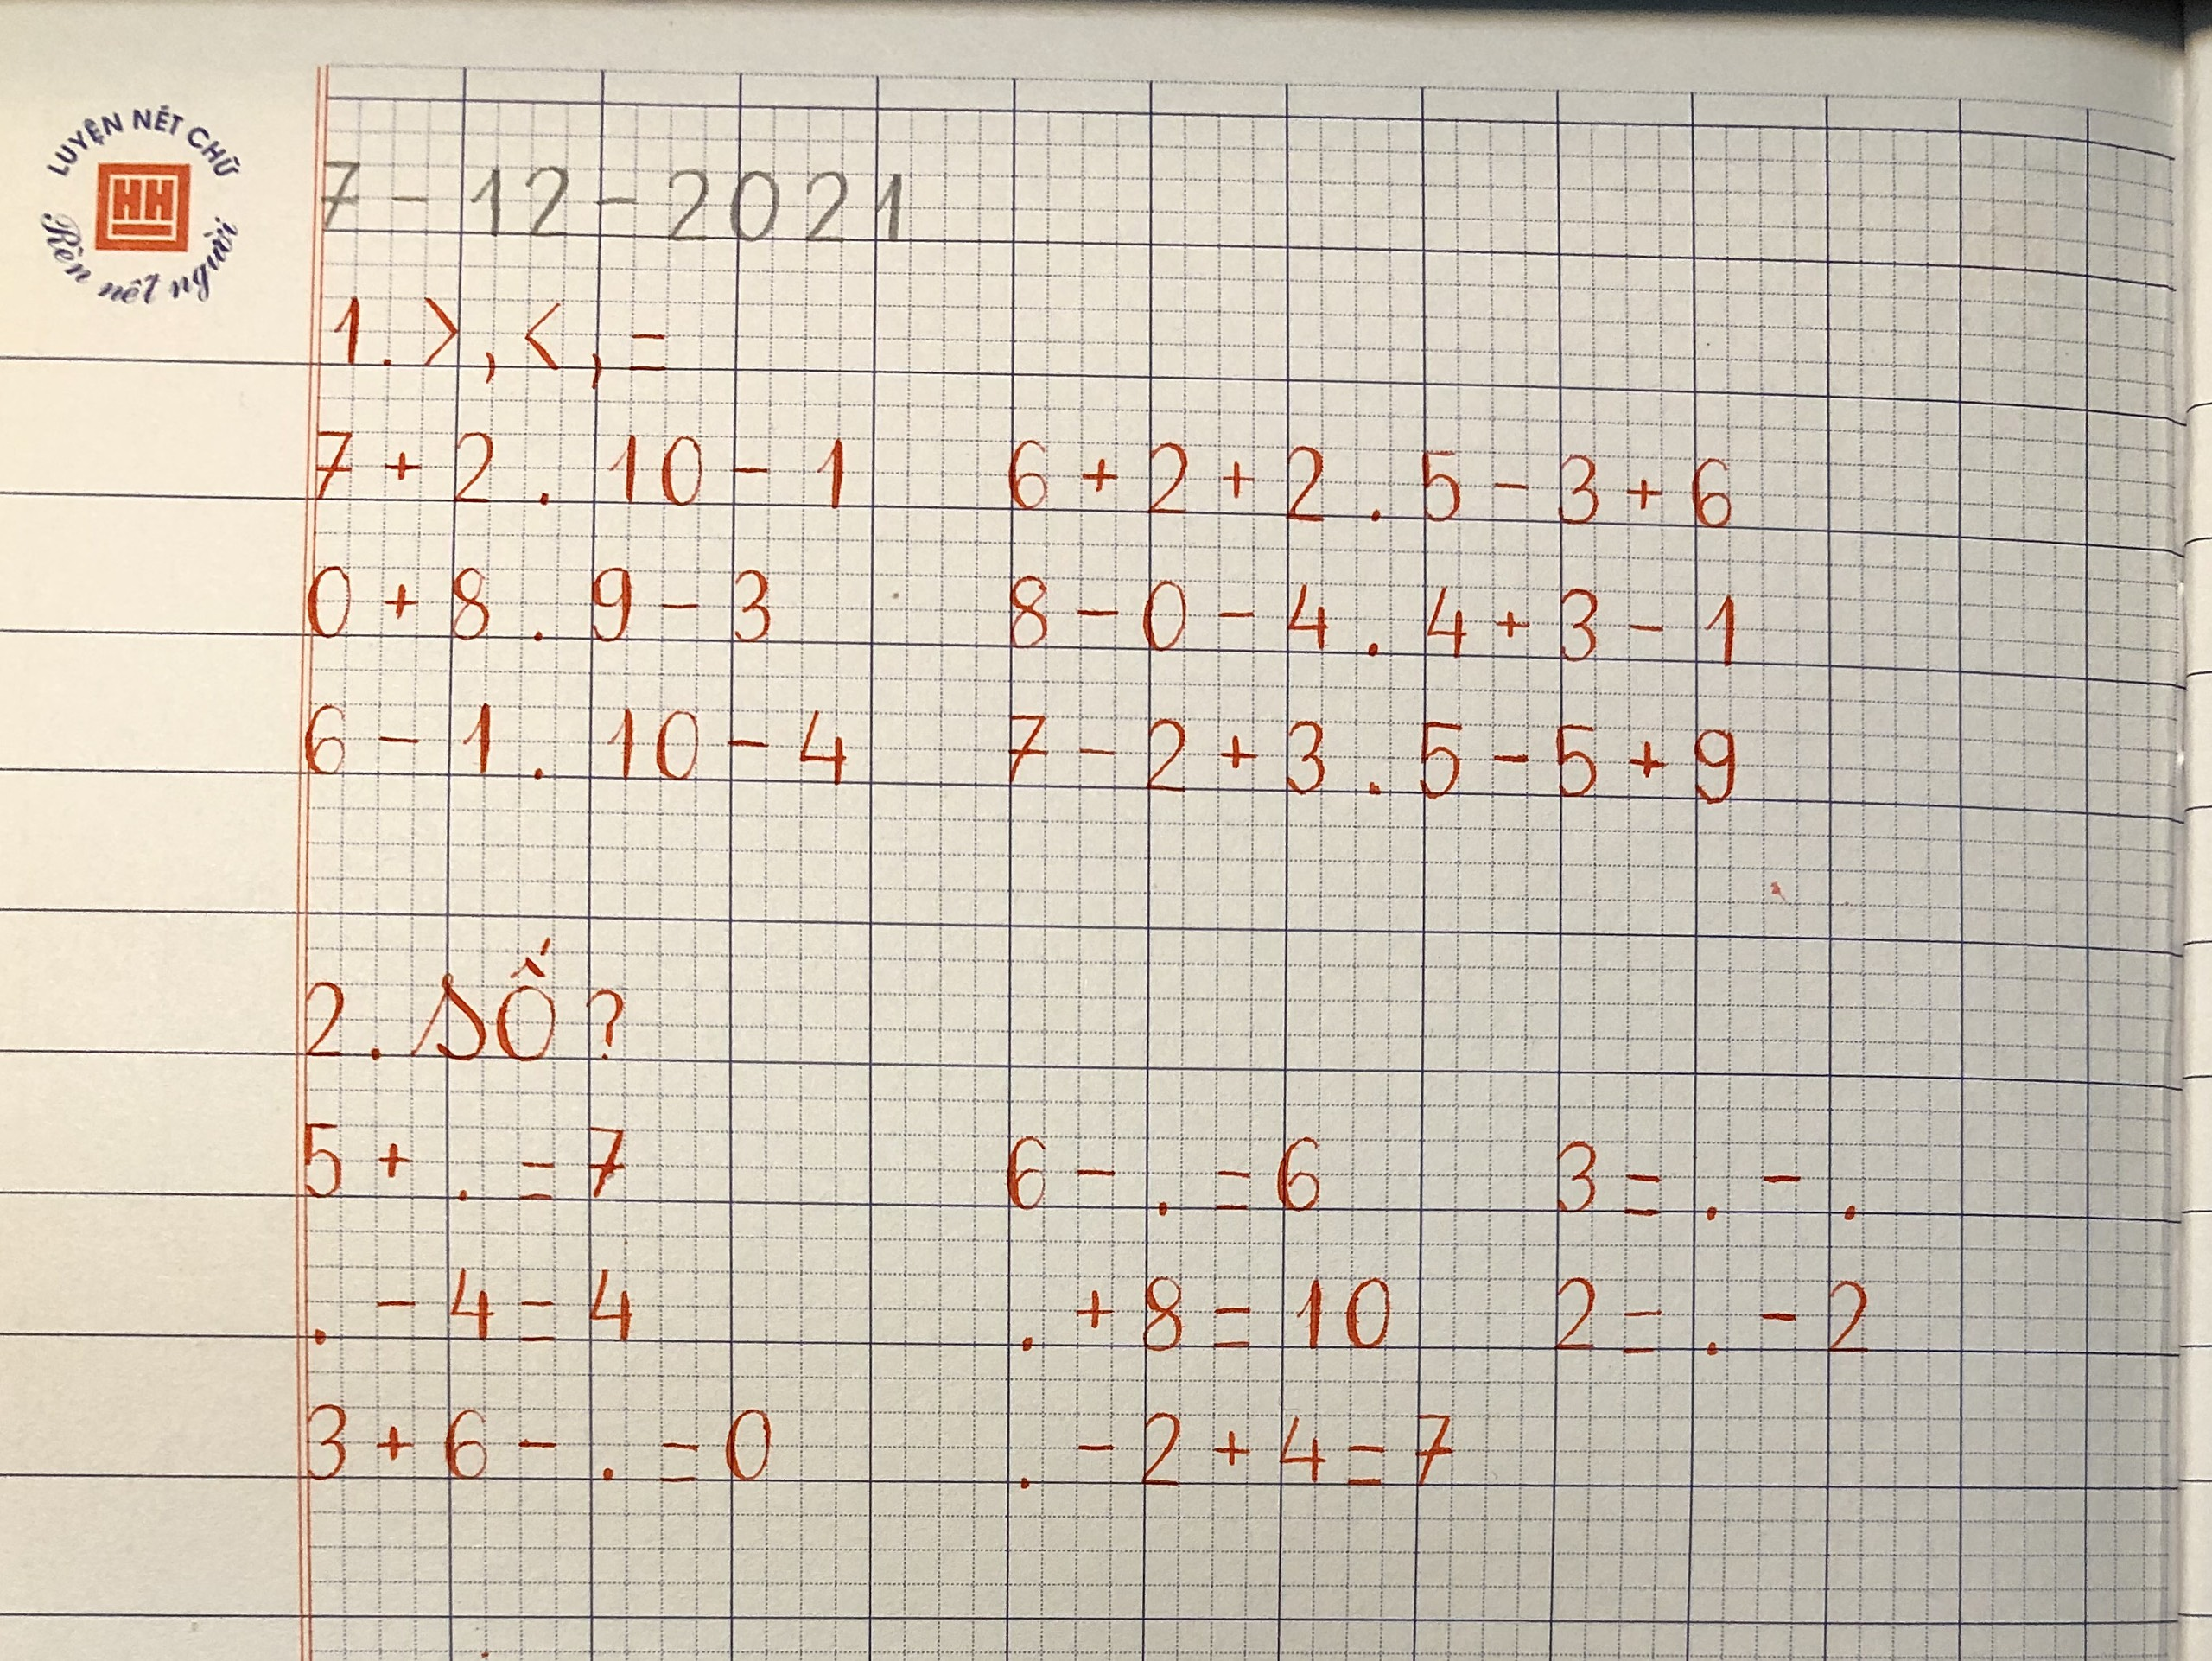 LUYỆN NÉT CHỮ
HH
Rèn nét người
7 - 12 - 2021
1. >, <, =
7 + 2 . 10 - 1 6 + 2 + 2 . 5 - 3 + 6
0 + 8 . 9 - 3 8 - 0 - 4 . 4 + 3 - 1
6 - 1 . 10 - 4 7 - 2 + 3 . 5 - 5 + 9
2. Số ?
5 + . = 7 6 - . = 6 3 = . - .
. - 4 = 4 . + 8 = 10 2 = . - 2
3 + 6 - . = 0 . - 2 + 4 = 7